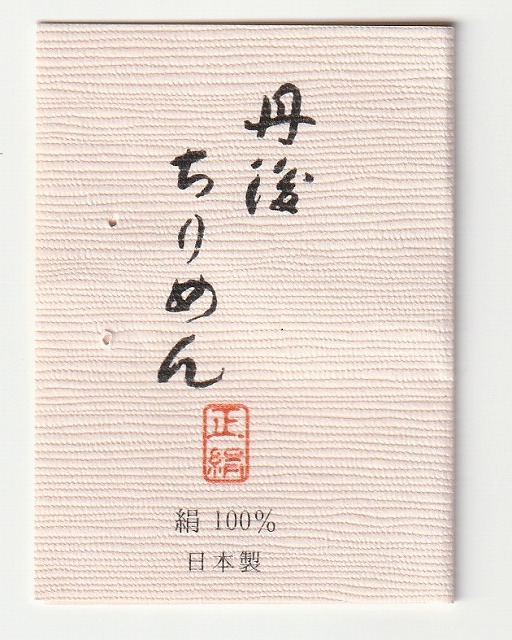 丹後
ちりめん
正絹
絹 100%
日本製